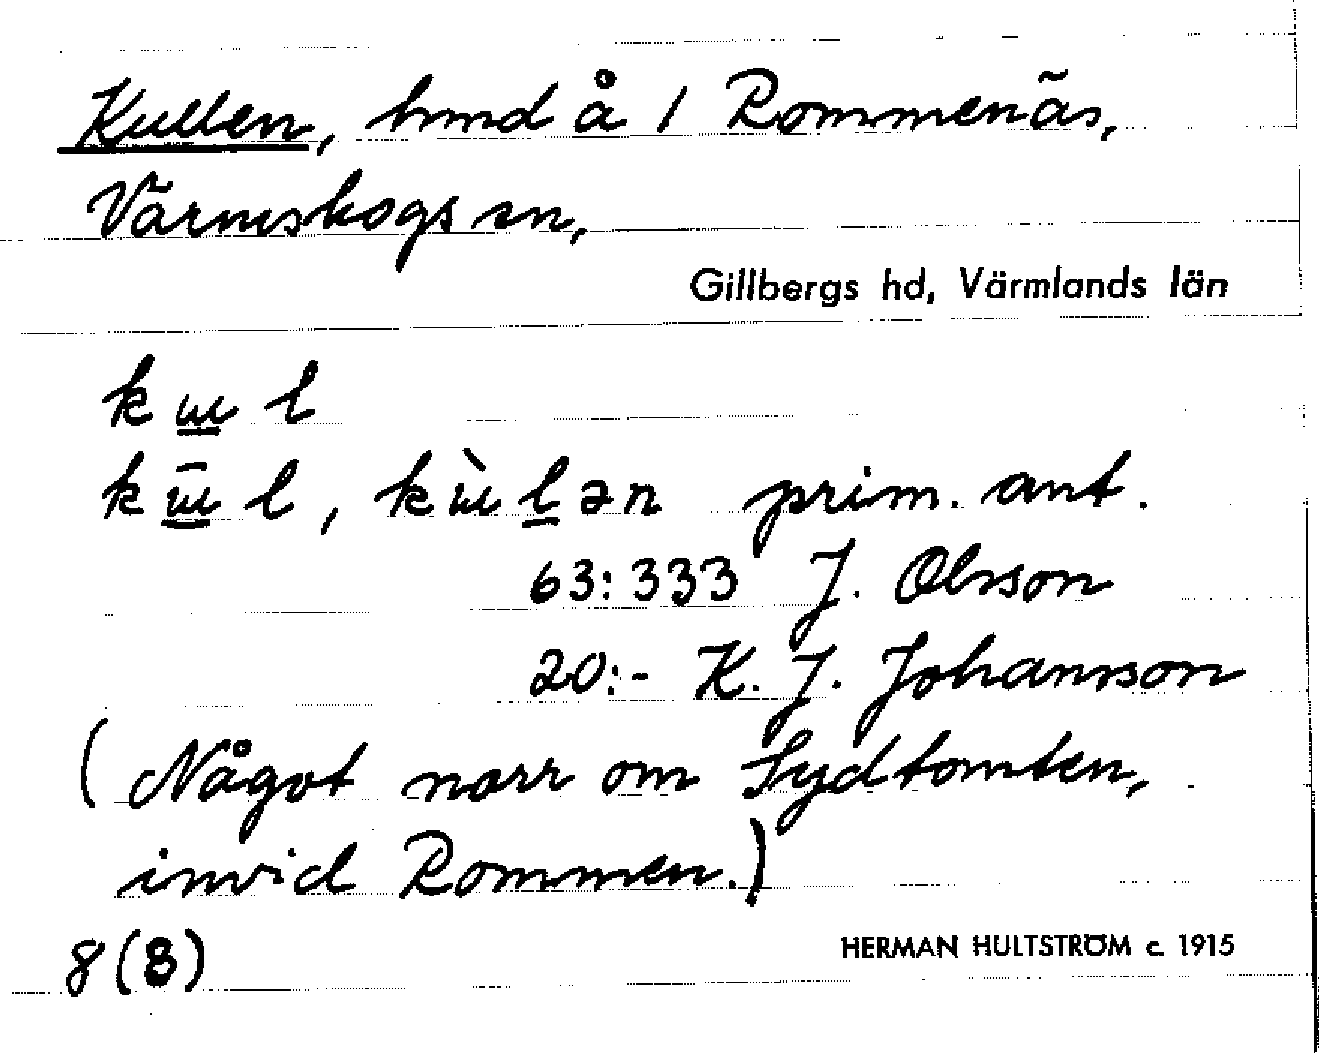 Kullen, hmd å 1 Rommenäs,
Värmskogs sn,
Gillbergs hd, Värmlands län
prim. ant.
63:333 J. Olsson
20:- K. J. Johansson
(Något norr om Sydtomten,
invid Rommen.)
8(8)
HERMAN HULTSTRÖM c. 1915